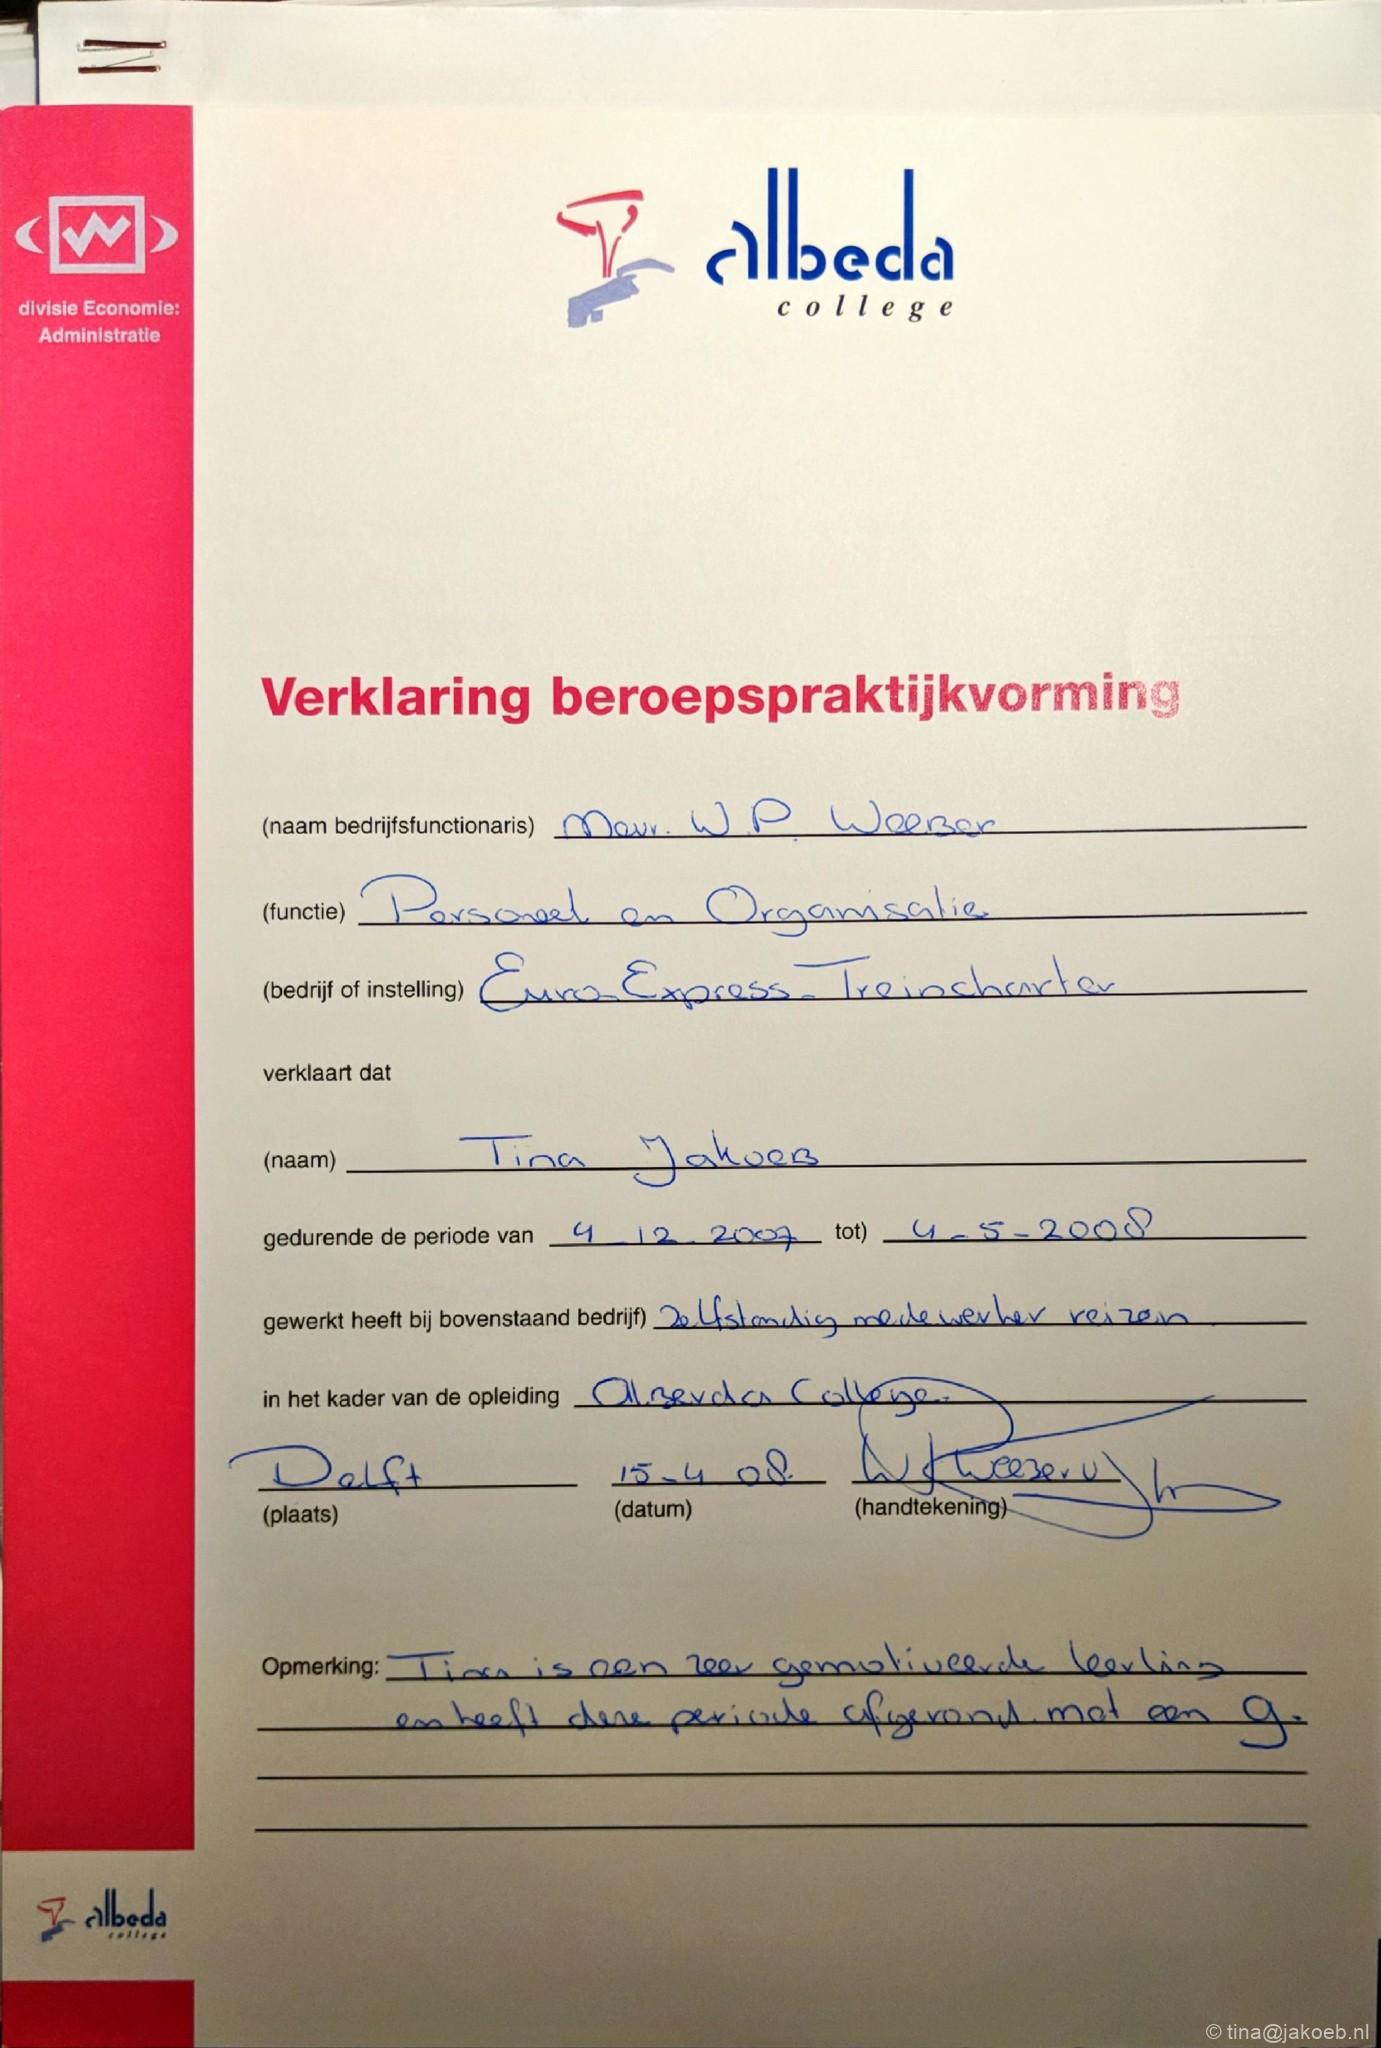 divisie Economie:
Administratie
albeda
college
Verklaring beroepspraktijkvorming
(naam bedrijfsfunctionaris) Mevr. W.P. Weeber
(functie) Personeel en Organisatie
(bedrijf of instelling) Euro-Express-Treincharter
verklaart dat
(naam) Tina Jakoeb
gedurende de periode van 4-12-2007 tot) 4-5-2008
gewerkt heeft bij bovenstaand bedrijf) Zelfstandig medewerker reizen
in het kader van de opleiding Alberda College
Delft 15-4 08.
(plaats) (datum) (handtekening)
Opmerking: Tina is een zeer gemotiveerde leerling
en heeft deze periode afgerond met een 9.
albeda
college
© tina@jakoeb.nl